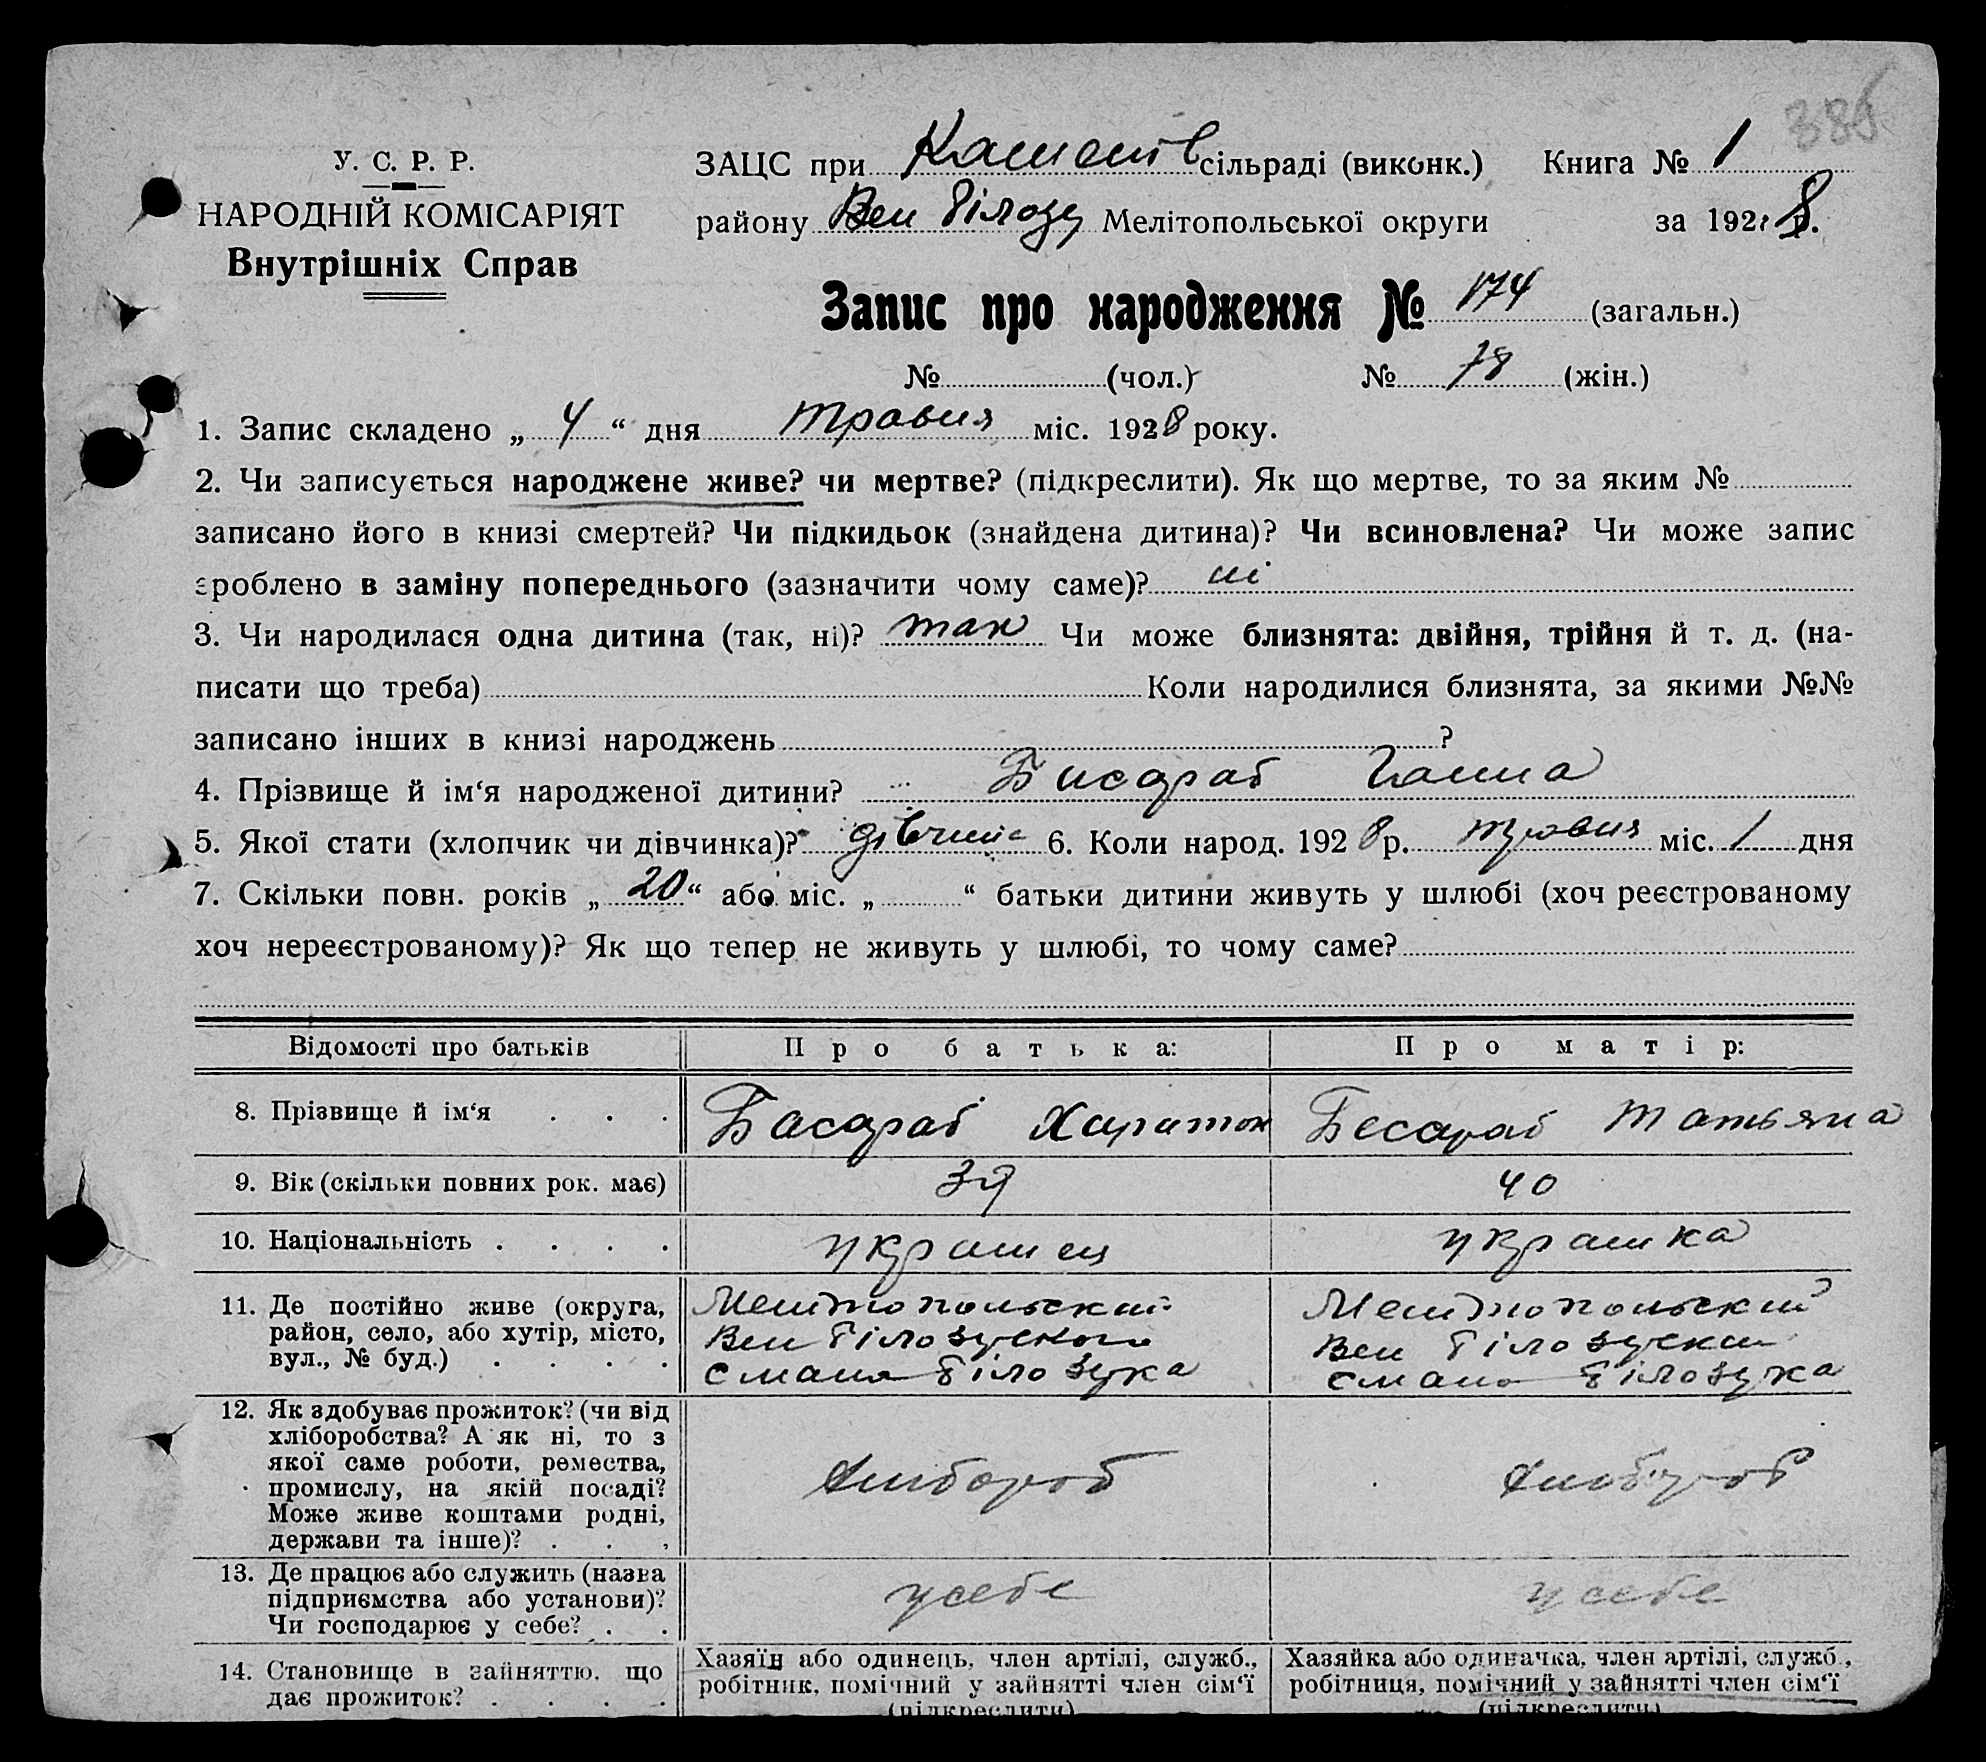 385
У. С. Р. Р.
НАРОДНІЙ КОМІСАРІЯТ
Внутрішніх Справ
ЗАЦС при сільраді (виконк.) Книга № 1
району Вел Білозу Мелітопольської округи за 1928 р.
Запис про народження № 174 (загальн.)
№ (чол.) № 78 (жін.)
1. Запис складено „ 4 “ дня травня міс. 1928 року.
2. Чи записується народжене живе? чи мертве? (підкреслити). Як що мертве, то за яким №
записано його в книзі смертей? Чи підкидьок (знайдена дитина)? Чи всиновлена? Чи може запис
зроблено в заміну попереднього (зазначити чому саме)? ні
3. Чи народилася одна дитина (так, ні)? так Чи може близнята: двійня, трійня й т. д. (на-
писати що треба) Коли народилися близнята, за якими №№
записано інших в книзі народжень ?
4. Прізвище й ім‘я народженої дитини? Бисараб Ганна
5. Якої стати (хлопчик чи дівчинка)? дівчина 6. Коли народ. 1928 р. травня міс. 1 дня
7. Скільки повн. років „ 20 “ або міс. „ “ батьки дитини живуть у шлюбі (хоч реєстрованому
хоч нереєстрованому)? Як що тепер не живуть у шлюбі, то чому саме?
Відомості про батьків Про батька: Про матір:
8. Прізвище й ім‘я . . . Басараб Харитон Бесараб Татьяна
9. Вік (скільки повних рок. має) 39 40
10. Національність . . . . украинец украинка
11. Де постійно живе (округа,
район, село, або хутір, місто,
вул., № буд.) . . . .
Мелітопольский
Вел Білозуского
Смала Білозука
Мелітопольский
Вел Білозуски
Смала Білозука
12. Як здобуває прожиток? (чи від
хліборобства? А як ні, то з
якої саме роботи, ремества,
промислу, на якій посаді?
Може живе коштами родні,
держави та інше)? . . .
хлибороб хлибороб
13. Де працює або служить (назва
підприємства або установи)?
Чи господарює у себе? . .
у себе у себе
14. Становище в зайняттю, що
дає прожиток? . . . .
Хазяїн або одинець, член артілі, служб.,
робітник, помічний у зайнятті член сім‘ї
(підкреслити)
Хазяйка або одиначка, член артілі, служб.,
робітниця, помічний у зайнятті член сім‘ї
(підкреслити)